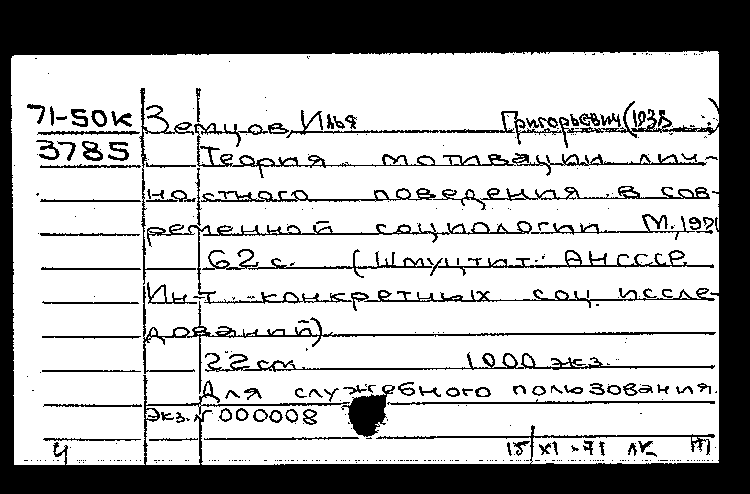 71-50к Земцов, Илья Григорьевич (1938 )
3785 Теория мотивации лич-
ностного поведения в сов-
ременной социологии М., 1971
62 с. (Шмуцтит.: АН СССР.
Ин-т конкретных соц. иссле-
дований).
22 см. 1000 экз.
Для служебного пользования.
Экз. N 000008
Ч 15/XI-71 ЛК